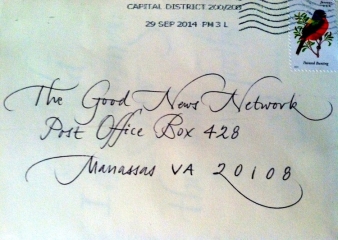 CAPITAL DISTRICT 200/208
29 SEP 2014 PM 3 L
The Good News Network
Post Office Box 428
Manassas VA 20108